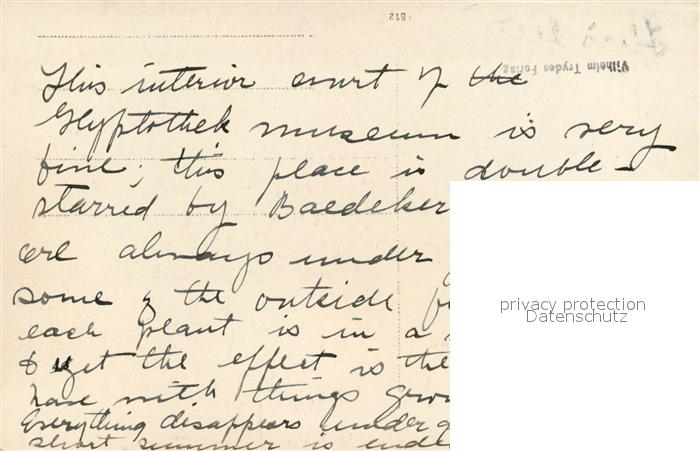 812
Vilhelm Trydes Forlag
This interior court of the
Glyptothek museum is very
fine; this place is double-
starred by Baedeker
are always under
some of the outside
each plant is in a
& yet the effect is the
have with things grow
Everything disappears under
short summer is ende
privacy protection
Datenschutz